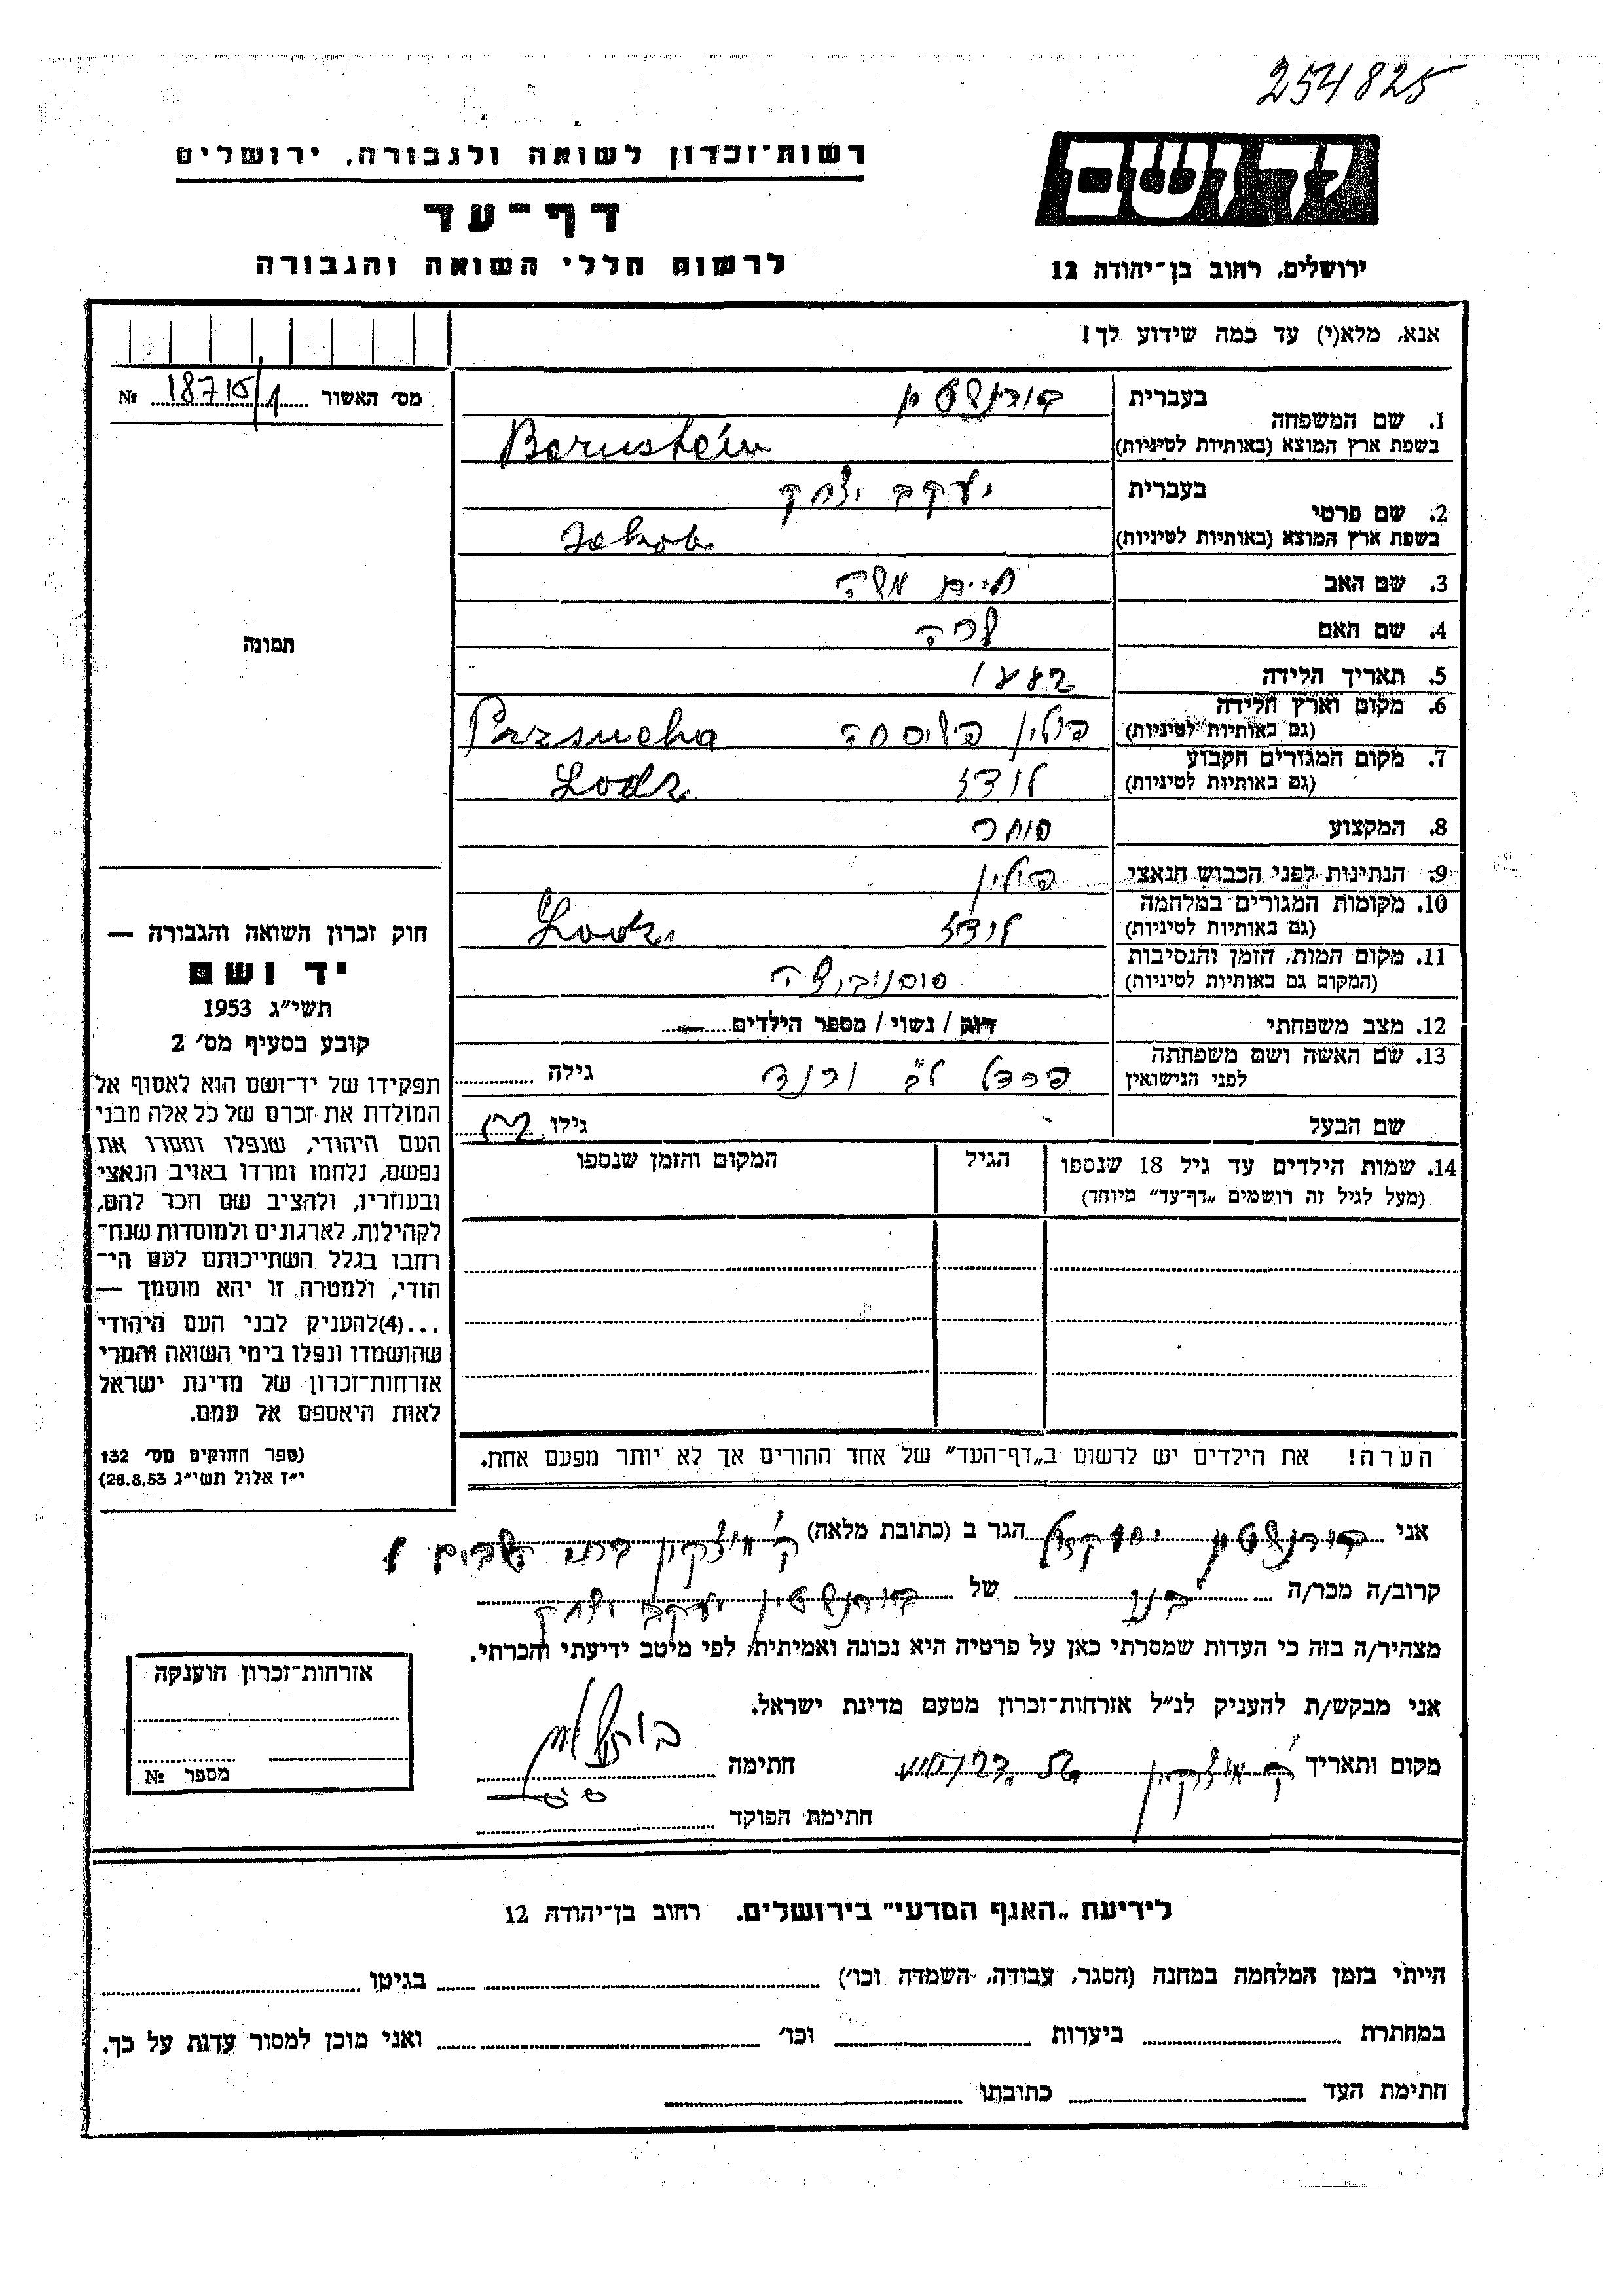 254825
יד ושם
ירושלים, רחוב בן־יהודה 12
רשות־זכרון לשואה ולגבורה, ירושלים
דף־עד
לרשום חללי השואה והגבורה
אנא, מלא(י) עד כמה שידוע לך!
מס׳ האשור 18715/1 №
1. שם המשפחה
בעברית בורנשטין
בשפת ארץ המוצא (באותיות לטיניות) Bornstein
2. שם פרטי
בעברית יעקב יצחק
בשפת ארץ המוצא (באותיות לטיניות) Jakob
3. שם האב חיים משה
4. שם האם שרה
5. תאריך הלידה
6. מקום וארץ הלידה
(גם באותיות לטיניות) פולין פשיסחה Przsucha
7. מקום המגורים הקבוע
(גם באותיות לטיניות) לודז Lodz
8. המקצוע סוחר
9. הנתינות לפני הכבוש הנאצי פולין
10. מקומות המגורים במלחמה
(גם באותיות לטיניות) לודז Lodz
11. מקום המות, הזמן והנסיבות
(המקום גם באותיות לטיניות) סוסנוביצה
12. מצב משפחתי רווק / נשוי / מספר הילדים
13. שם האשה ושם משפחתה
לפני הנישואין פרדל לב גילה
שם הבעל גילו
14. שמות הילדים עד גיל 18 שנספו הגיל המקום והזמן שנספו
(מעל לגיל זה רושמים „דף־עד” מיוחד)
הערה! את הילדים יש לרשום ב„דף־העד” של אחד ההורים אך לא יותר מפעם אחת.
תמונה
חוק זכרון השואה והגבורה —
יד ושם
תשי״ג 1953
קובע בסעיף מס׳ 2
תפקידו של יד־ושם הוא לאסוף אל
המולדת את זכרם של כל אלה מבני
העם היהודי, שנפלו ומסרו את
נפשם, נלחמו ומרדו באויב הנאצי
ובעוזריו, ולהציב שם וזכר להם,
לקהילות, לארגונים ולמוסדות שנח־
רבו בגלל השתייכותם לעם הי־
הודי, ולמטרה זו יהא מוסמך —
...(4)להעניק לבני העם היהודי
שהושמדו ונפלו בימי השואה והמרי
אזרחות־זכרון של מדינת ישראל
לאות היאספם אל עמם.
(ספר החוקים מס׳ 132
י״ז אלול תשי״ג 28.8.53)
אני בורנשטין יחזקאל הגר ב (כתובת מלאה) ק׳ מוצקין
קרוב/ה מכר/ה בנו של בורנשטין יעקב יצחק
מצהיר/ה בזה כי העדות שמסרתי כאן על פרטיה היא נכונה ואמיתית, לפי מיטב ידיעתי והכרתי.
אני מבקש/ת להעניק לנ״ל אזרחות־זכרון מטעם מדינת ישראל.
מקום ותאריך ק׳ מוצקין חתימה
חתימת הפוקד
אזרחות־זכרון הוענקה
מספר №
לידיעת „האגף המדעי” בירושלים. רחוב בן־יהודה 12
הייתי בזמן המלחמה במחנה (הסגר, עבודה, השמדה וכו׳) בגיטו
במחתרת ביערות וכו׳ ואני מוכן למסור עדות על כך.
חתימת העד כתובתו